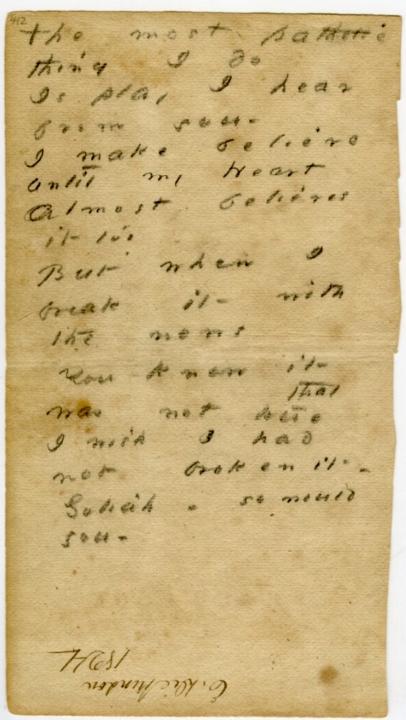 412
The most pathetic
thing I do
Is play I hear
from you -
I make believe
until my Heart
Almost believes
it too
But when I
break it - with
the news
You knew it -
that
was not true
I wish I had
not broken it -
Goliah - so would
you -
E. Dickinson
1884